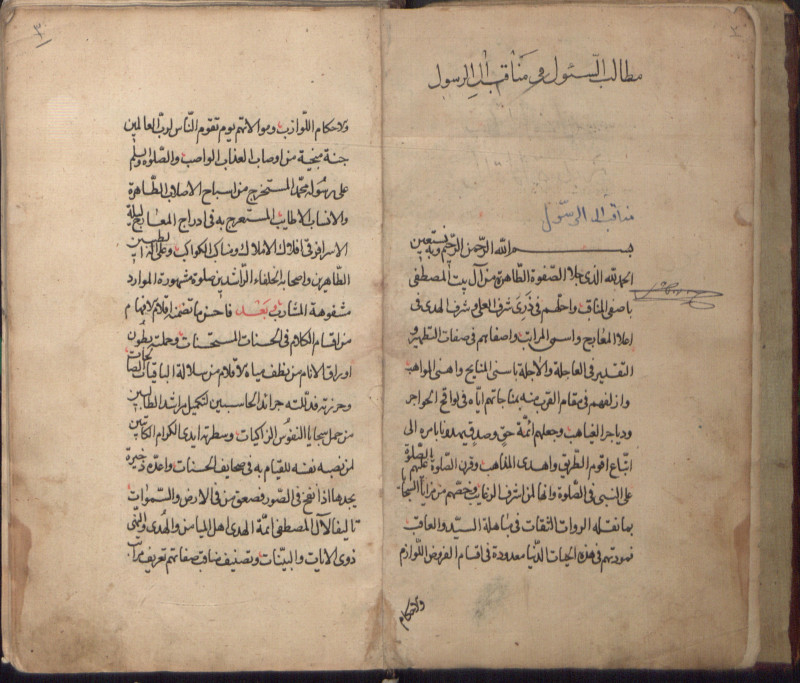 مطالب السئول في مناقب آل الرسول
مناقب آل الرسول
بسم الله الرحمن الرحيم وبه نستعين
الحمد لله الذي جلا الصفوة الطاهرة من آل بيت المصطفى
باصفى المناقب واحلهم في ذرى شرف العلى وشرف الهدى في
اعلا المعارج واسمى المراتب واصفاهم في صفات التطهير و
التقدير في العاجلة والآجلة باسنى المنايح واهنى المواهب
وازلفهم في مقام القرب منه بمناجاتهم اياه في لواقح الهواجر
ودياجر الغياهب وجعلهم ائمة حق وصدق يهدون بامره الى
اتباع اقوم الطريق واهدى المذاهب وقرن الصلوة عليهم بالصلوة
على النبي في الصلوة وانها لمن اشرف الرغايب وخصهم من مزايا
بما نقله الروات الثقات في مباهلة السيد والعاقب
فمودتهم في هذه الحيات الدنيا معدودة في اقسام الفروض اللوازم
ولاحكام
٣
ولاحكام اللوازب وموالاتهم يوم تقوم الناس لرب العالمين
جنة منجية من اوصاب العذاب الواصب والصلوة والسلم
على رسوله محمد المستخرج من اسباح الاصلاب الطاهرة
والانساب الاطايب المستعرج به في ادراج المعارج ليلة
الاسرا فوق افلاك الاملاك ومناكب الكواكب وعلى اله الطيبين
الطاهرين واصحابه الخلفاء الراشدين صلوة مشهورة الموارد
مشفوهة المشارب بعد فاحرز ما تضمنه اقلام الافهام
من اقسام الكلام في الحسنات المستحسنات وحملت بطون
اوراق الانام من نطف مياه الاقلام من سلالة الباقيات الصالحات
وحررته فذلكته جرائد الحاسبين لتكميل مراشد الطالبين
من جمل سجايا النفوس الزاكيات وسطرته ايدي الكرام الكاتبين
لمن نصبه نفسه للقيام به في صحايف الحسنات واعده ذخيرة
يجدها اذا نفخ في الصور فصعق من في الارض والسموات
تاليف لآل المصطفى ائمة الهدى اهل الميامن والهدى والنهى
ذوي الايات والبينات وتصنيف مناقب صفاتهم تعريف مراتب